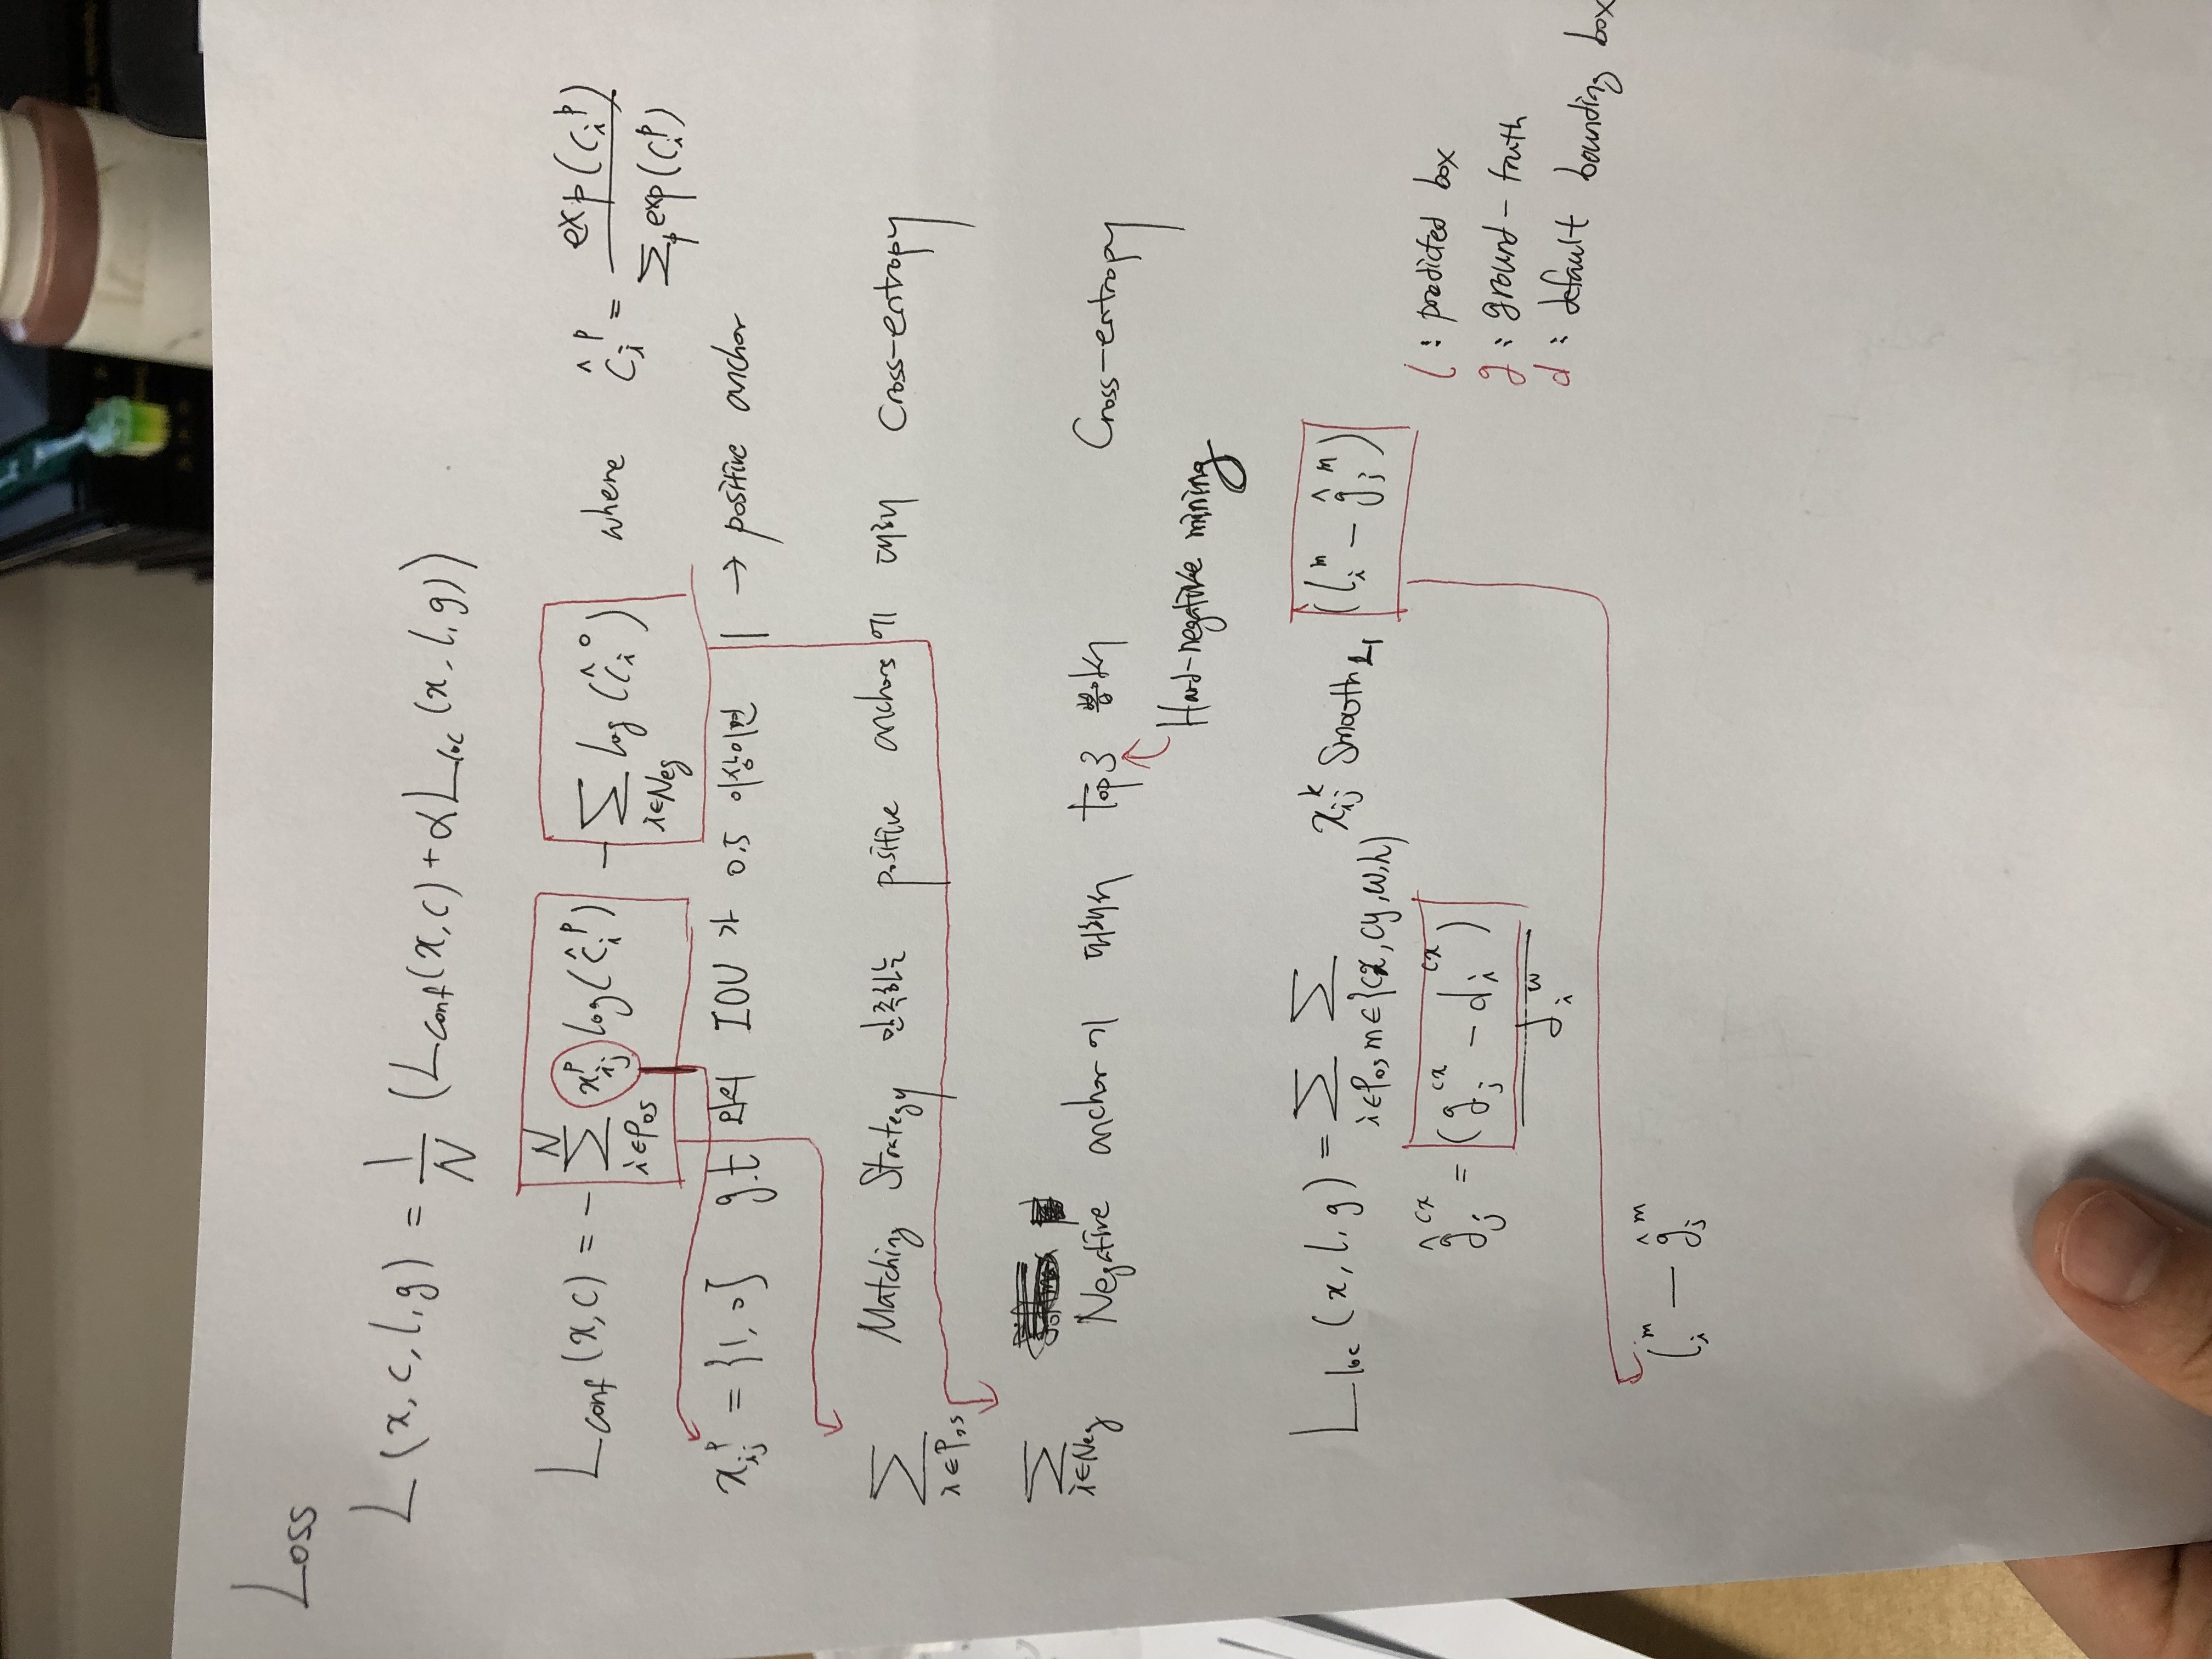 Loss
L(x, c, l, g) = 1/N (L_conf(x, c) + αL_loc(x, l, g))
L_conf(x, c) = - Σ_{i∈Pos}^{N} x_{ij}^{p} log(ĉ_i^p) - Σ_{i∈Neg} log(ĉ_i^o) where ĉ_i^p = exp(c_i^p) / Σ_p exp(c_i^p)
x_{ij}^{p} = {1, 0} g.t 와의 IOU 가 0.5 이상이면 1 → positive anchor
Σ_{i∈Pos} Matching Strategy 만족하는 positive anchors에 대해 Cross-entropy
Σ_{i∈Neg} Negative anchor에 대해서 top3 뽑아서 Cross-entropy
Hard-negative mining
L_loc(x, l, g) = Σ_{i∈Pos} Σ_{m∈{cx, cy, w, h}} x_{ij}^{k} Smooth_{L1} (l_i^m - ĝ_j^m)
ĝ_j^{cx} = (g_j^{cx} - d_i^{cx}) / d_i^w
l : predicted box
g : ground-truth
d : default bounding box
l_i^m - ĝ_j^m